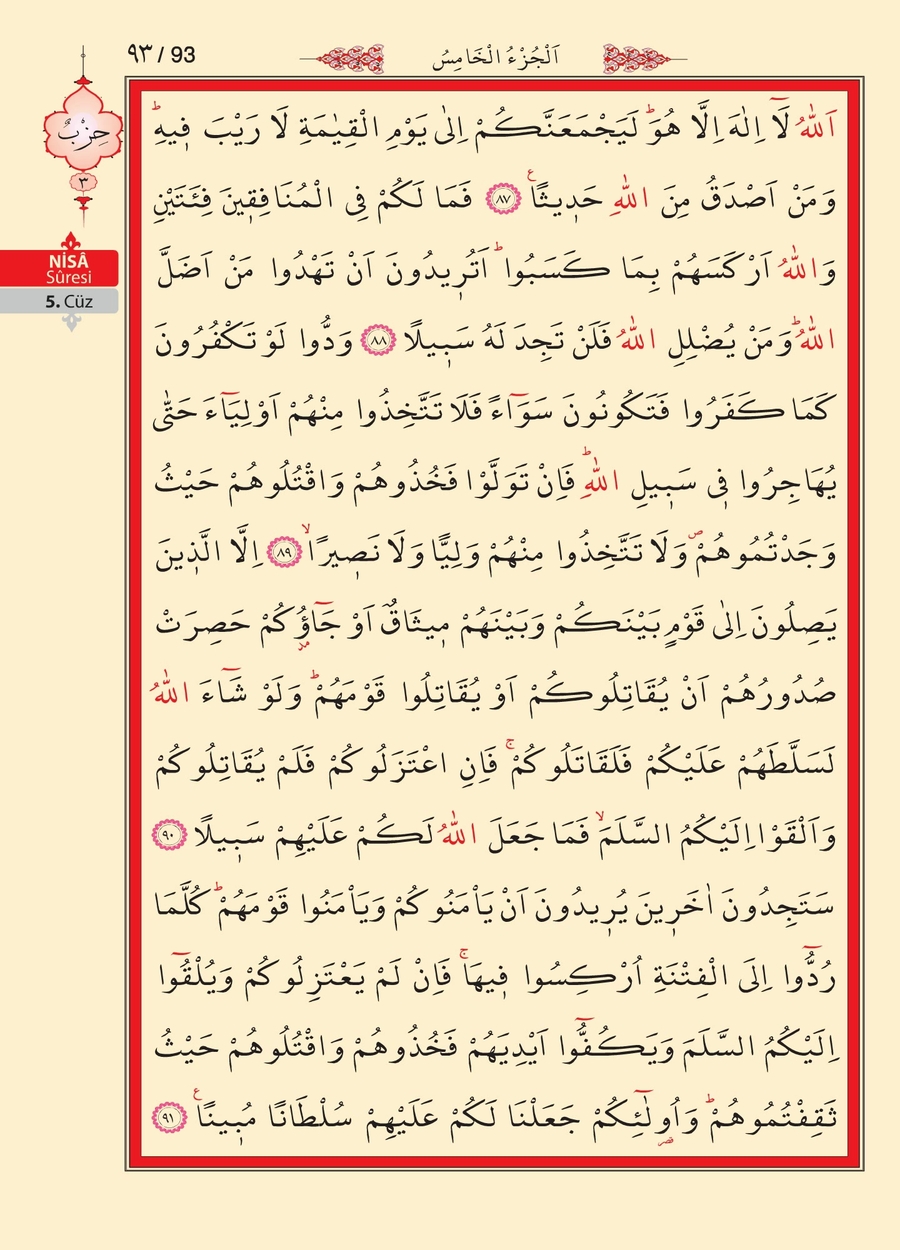 ٩٣ / 93
اَلْجُزْءُ الْخَامِسُ
حِزْبٌ
٣
NİSÂ
Sûresi
5. Cüz
اَللّٰهُ لَٓا اِلٰهَ اِلَّا هُوَۜ لَيَجْمَعَنَّكُمْ اِلٰى يَوْمِ الْقِيٰمَةِ لَا رَيْبَ ف۪يهِۜ
وَمَنْ اَصْدَقُ مِنَ اللّٰهِ حَد۪يثًا۟ ﴿٨٧﴾ فَمَا لَكُمْ فِي الْمُنَافِق۪ينَ فِئَتَيْنِ
وَاللّٰهُ اَرْكَسَهُمْ بِمَا كَسَبُواۜ اَتُر۪يدُونَ اَنْ تَهْدُوا مَنْ اَضَلَّ
اللّٰهُۜ وَمَنْ يُضْلِلِ اللّٰهُ فَلَنْ تَجِدَ لَهُ سَب۪يلًا ﴿٨٨﴾ وَدُّوا لَوْ تَكْفُرُونَ
كَمَا كَفَرُوا فَتَكُونُونَ سَوَٓاءً فَلَا تَتَّخِذُوا مِنْهُمْ اَوْلِيَٓاءَ حَتّٰى
يُهَاجِرُوا ف۪ي سَب۪يلِ اللّٰهِۜ فَاِنْ تَوَلَّوْا فَخُذُوهُمْ وَاقْتُلُوهُمْ حَيْثُ
وَجَدْتُمُوهُمْۖ وَلَا تَتَّخِذُوا مِنْهُمْ وَلِيًّا وَلَا نَص۪يرًاۙ ﴿٨٩﴾ اِلَّا الَّذ۪ينَ
يَصِلُونَ اِلٰى قَوْمٍ بَيْنَكُمْ وَبَيْنَهُمْ م۪يثَاقٌ اَوْ جَٓاؤُ۫كُمْ حَصِرَتْ
صُدُورُهُمْ اَنْ يُقَاتِلُوكُمْ اَوْ يُقَاتِلُوا قَوْمَهُمْۜ وَلَوْ شَٓاءَ اللّٰهُ
لَسَلَّطَهُمْ عَلَيْكُمْ فَلَقَاتَلُوكُمْۚ فَاِنِ اعْتَزَلُوكُمْ فَلَمْ يُقَاتِلُوكُمْ
وَاَلْقَوْا اِلَيْكُمُ السَّلَمَۙ فَمَا جَعَلَ اللّٰهُ لَكُمْ عَلَيْهِمْ سَب۪يلًا ﴿٩٠﴾
سَتَجِدُونَ اٰخَر۪ينَ يُر۪يدُونَ اَنْ يَأْمَنُوكُمْ وَيَأْمَنُوا قَوْمَهُمْۜ كُلَّمَا
رُدُّٓوا اِلَى الْفِتْنَةِ اُرْكِسُوا ف۪يهَاۚ فَاِنْ لَمْ يَعْتَزِلُوكُمْ وَيُلْقُٓوا
اِلَيْكُمُ السَّلَمَ وَيَكُفُّٓوا اَيْدِيَهُمْ فَخُذُوهُمْ وَاقْتُلُوهُمْ حَيْثُ
ثَقِفْتُمُوهُمْۜ وَاُو۬لٰٓئِكُمْ جَعَلْنَا لَكُمْ عَلَيْهِمْ سُلْطَانًا مُب۪ينًا۟ ﴿٩١﴾